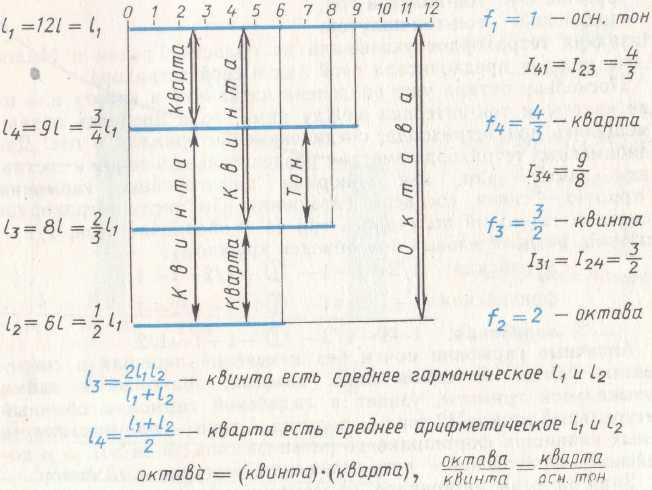 0 1 2 3 4 5 6 7 8 9 10 11 12
l₁ = 12l = l₁
f₁ = 1 — осн. тон
I₄₁ = I₂₃ = 4/3
Кварта
Квинта
l₄ = 9l = 3/4 l₁
f₄ = 4/3 — кварта
Квинта
Тон
Октава
I₃₄ = 9/8
l₃ = 8l = 2/3 l₁
f₃ = 3/2 — квинта
Кварта
I₃₁ = I₂₄ = 3/2
l₂ = 6l = 1/2 l₁
f₂ = 2 — октава
l₃ = 2l₁l₂/(l₁+l₂) — квинта есть среднее гармоническое l₁ и l₂
l₄ = (l₁+l₂)/2 — кварта есть среднее арифметическое l₁ и l₂
октава = (квинта)·(кварта), октава/квинта = кварта/осн. тон